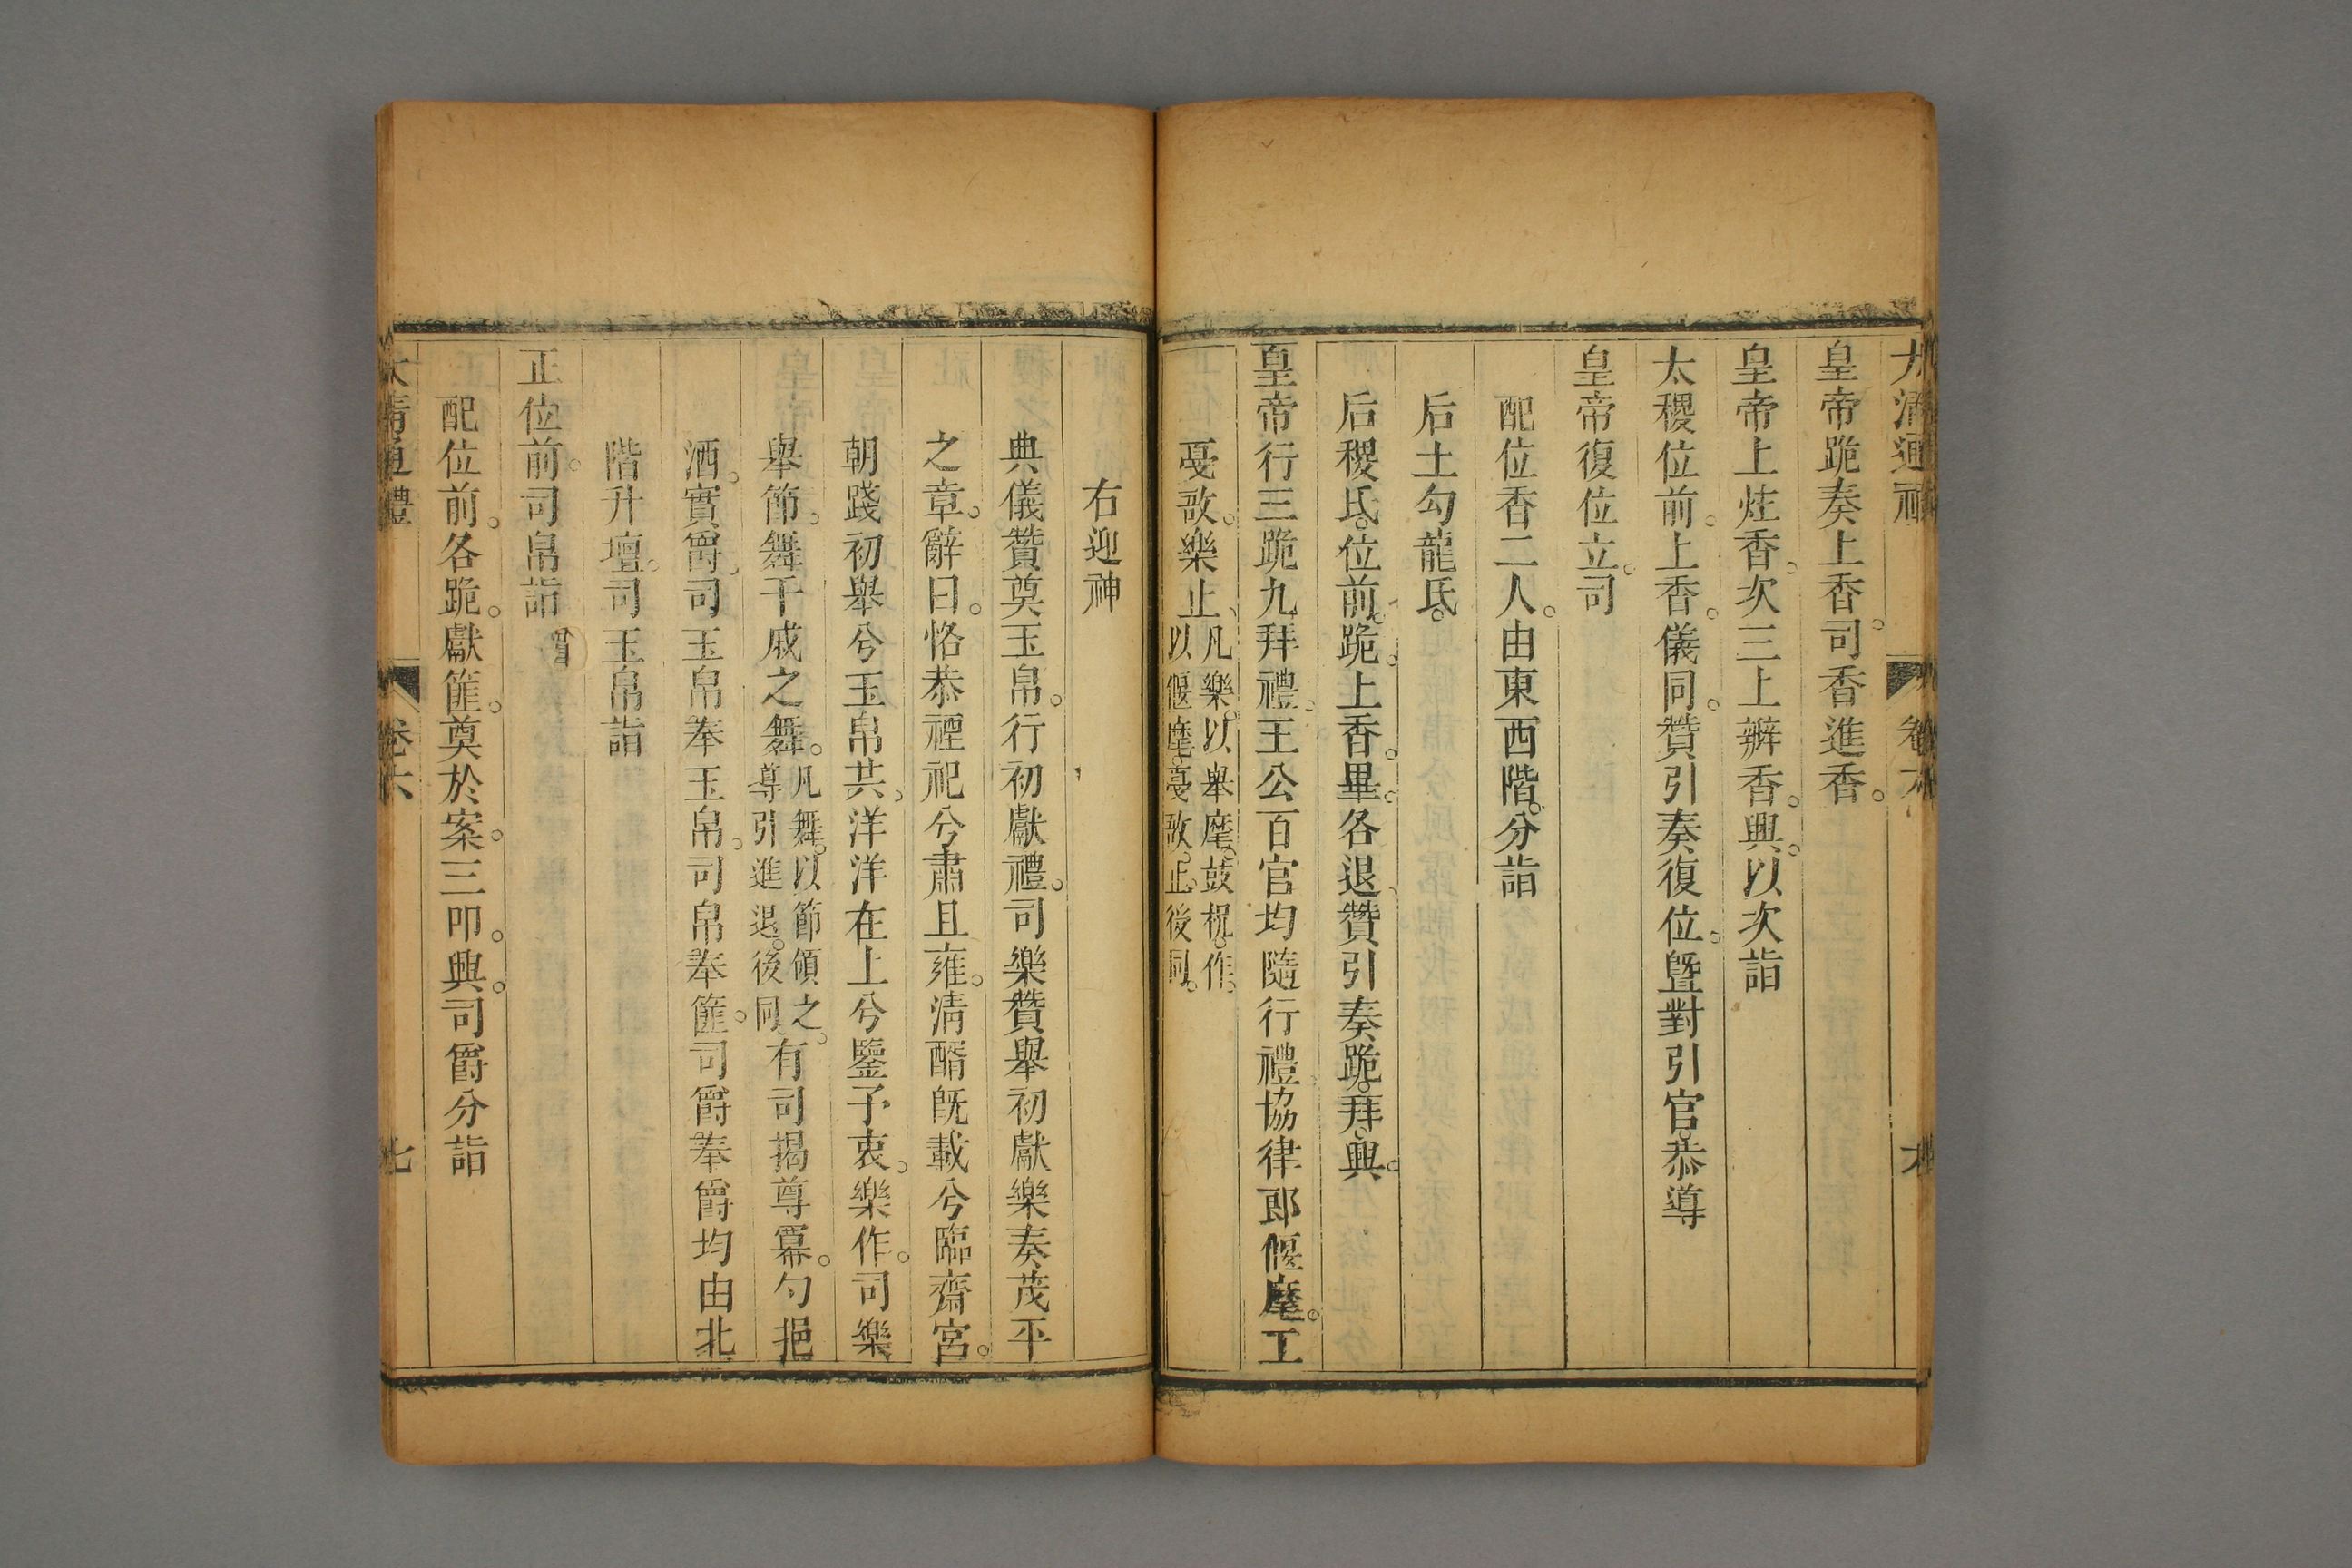 大清通禮 卷六 六
皇帝跪奏上香。司香進香。
皇帝上炷香。次三上瓣香。興。以次詣
太稷位前。上香。儀同。贊引奏復位。曁對引官。恭導
皇帝復位立。司
配位香二人。由東西階。分詣
后土勾龍氏。
后稷氏。位前。跪。上香。畢。各退。贊引奏跪。拜。興。
皇帝行三跪九拜禮。王公百官均隨行禮。協律郎偃麾。工
戞敔。樂止。凡樂。以舉麾。鼓柷。作。
以偃麾。戞敔。止。後同。
右迎神
典儀贊奠玉帛。行初獻禮。司樂贊舉初獻樂奏茂平
之章。辭曰。恪恭禋祀兮肅且雍。淸醑旣載兮臨齋宮。
朝踐初舉兮玉帛共。洋洋在上兮鑒予衷。樂作。司樂
舉節。舞干戚之舞。凡舞。以節領之。
導引進退。後同。有司揭尊冪。勺挹
酒。實爵。司玉帛奉玉帛。司帛奉篚。司爵奉爵均由北
階升壇。司玉帛詣
正位前。司帛詣
配位前。各跪。獻篚。奠於案。三叩。興。司爵分詣
大清通禮 卷六 七